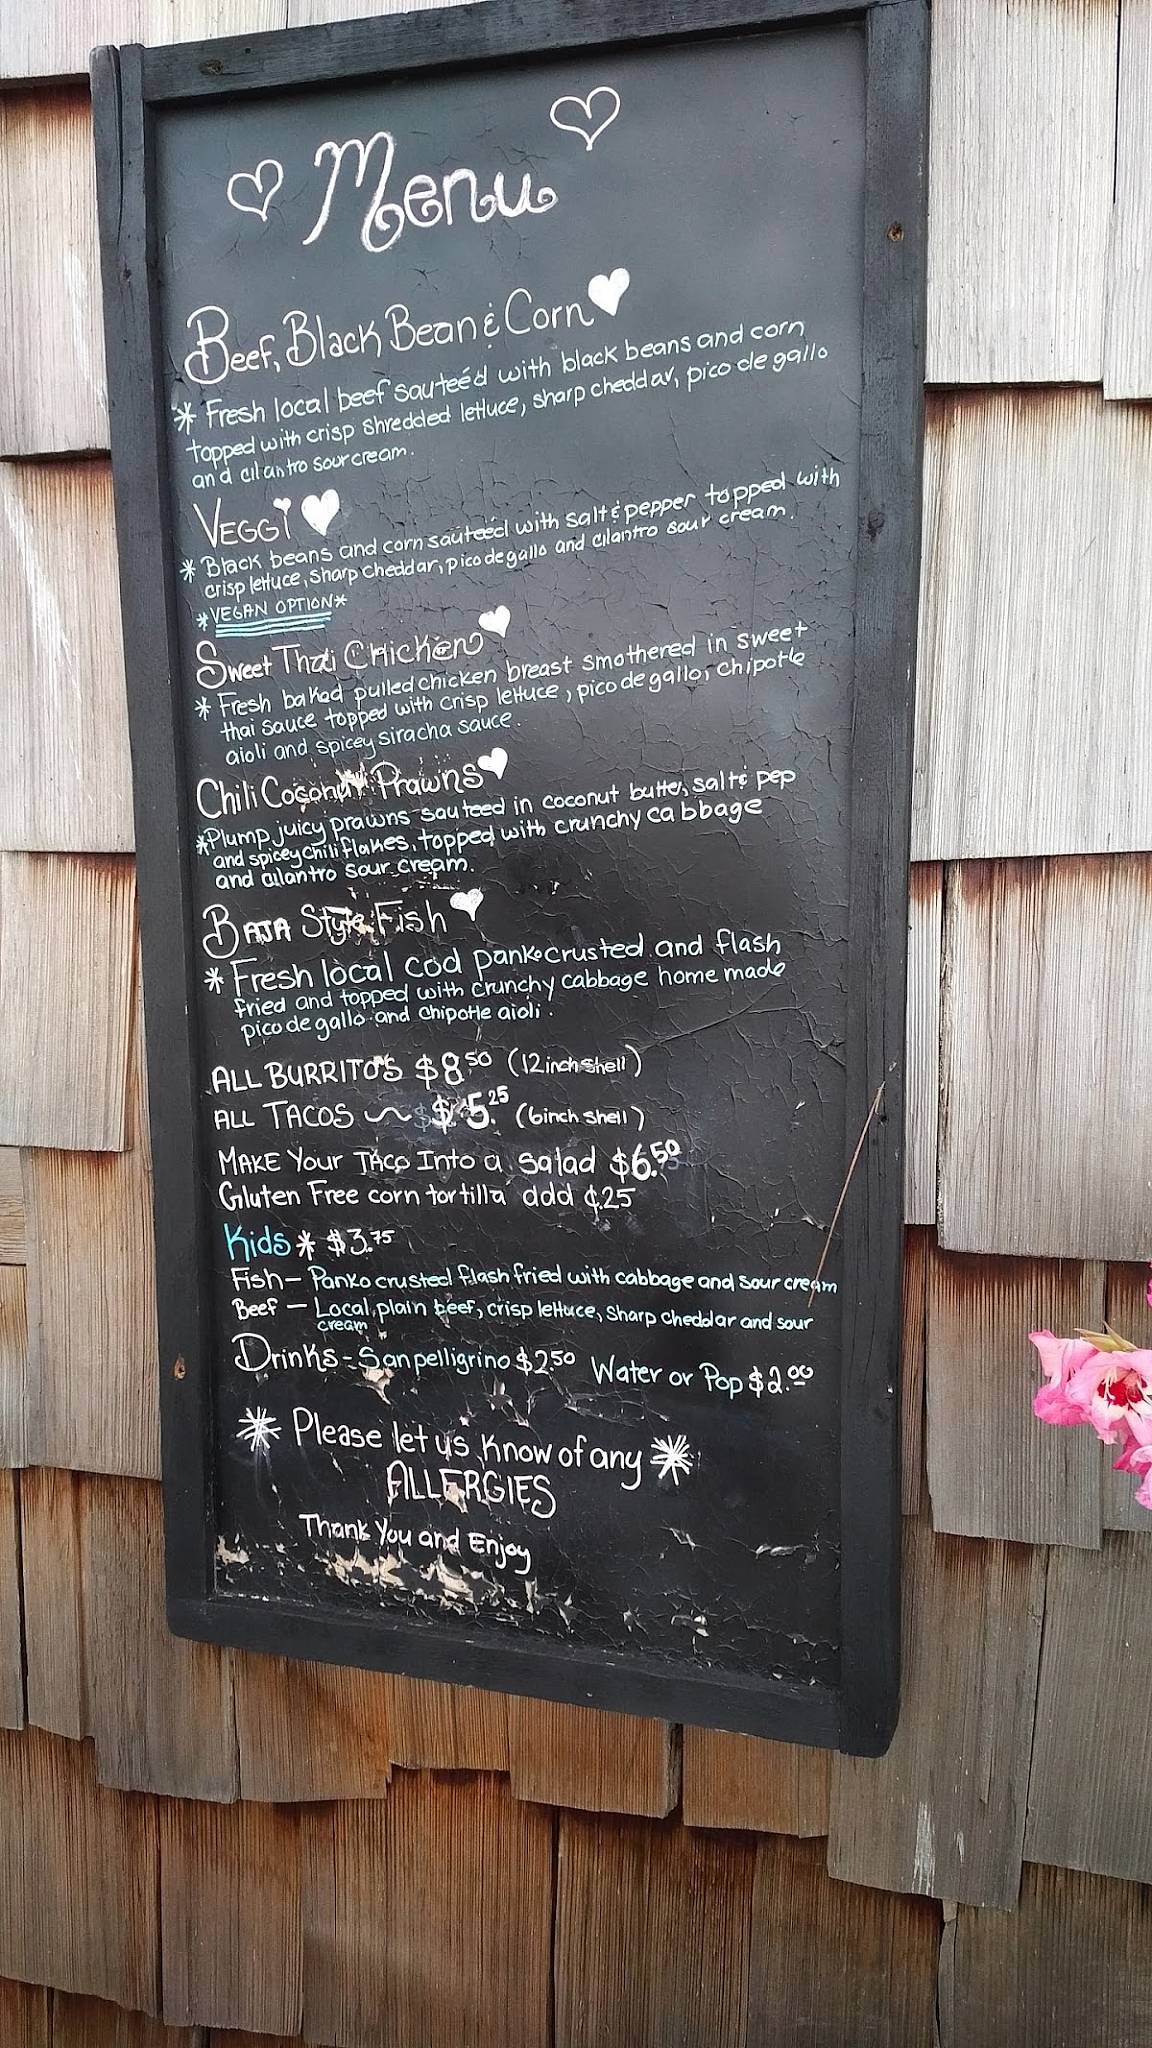 Menu
Beef, Black Bean & Corn
* Fresh local beef sauteéd with black beans and corn
topped with crisp shredded lettuce, sharp cheddar, pico de gallo
and cilantro sour cream.
VEGGi
* Black beans and corn sauteéd with salt & pepper topped with
crisp lettuce, sharp cheddar, pico de gallo and cilantro sour cream.
*VEGAN OPTION*
Sweet Thai Chicken
* Fresh baked pulled chicken breast smothered in sweet
thai sauce topped with crisp lettuce, pico de gallo, chipotle
aioli and spicey siracha sauce.
Chili Coconut Prawns
*Plump juicy prawns sauteed in coconut butter, salt & pep
and spicey chili flakes, topped with crunchy cabbage
and cilantro sour cream.
BAJA Style Fish
* Fresh local cod panko crusted and flash
fried and topped with crunchy cabbage home made
pico de gallo and chipotle aioli.
ALL BURRITOS $8.50 (12 inch shell)
ALL TACOS ~ $5.25 (6inch shell)
MAKE Your TACO Into a Salad $6.50
Gluten Free corn tortilla add ¢.25
Kids * $3.75
Fish - Panko crusted flash fried with cabbage and sour cream
Beef - Local plain beef, crisp lettuce, sharp cheddar and sour
cream
Drinks - Sanpelligrino $2.50 Water or Pop $2.00
* Please let us know of any *
ALLERGIES
Thank You and Enjoy